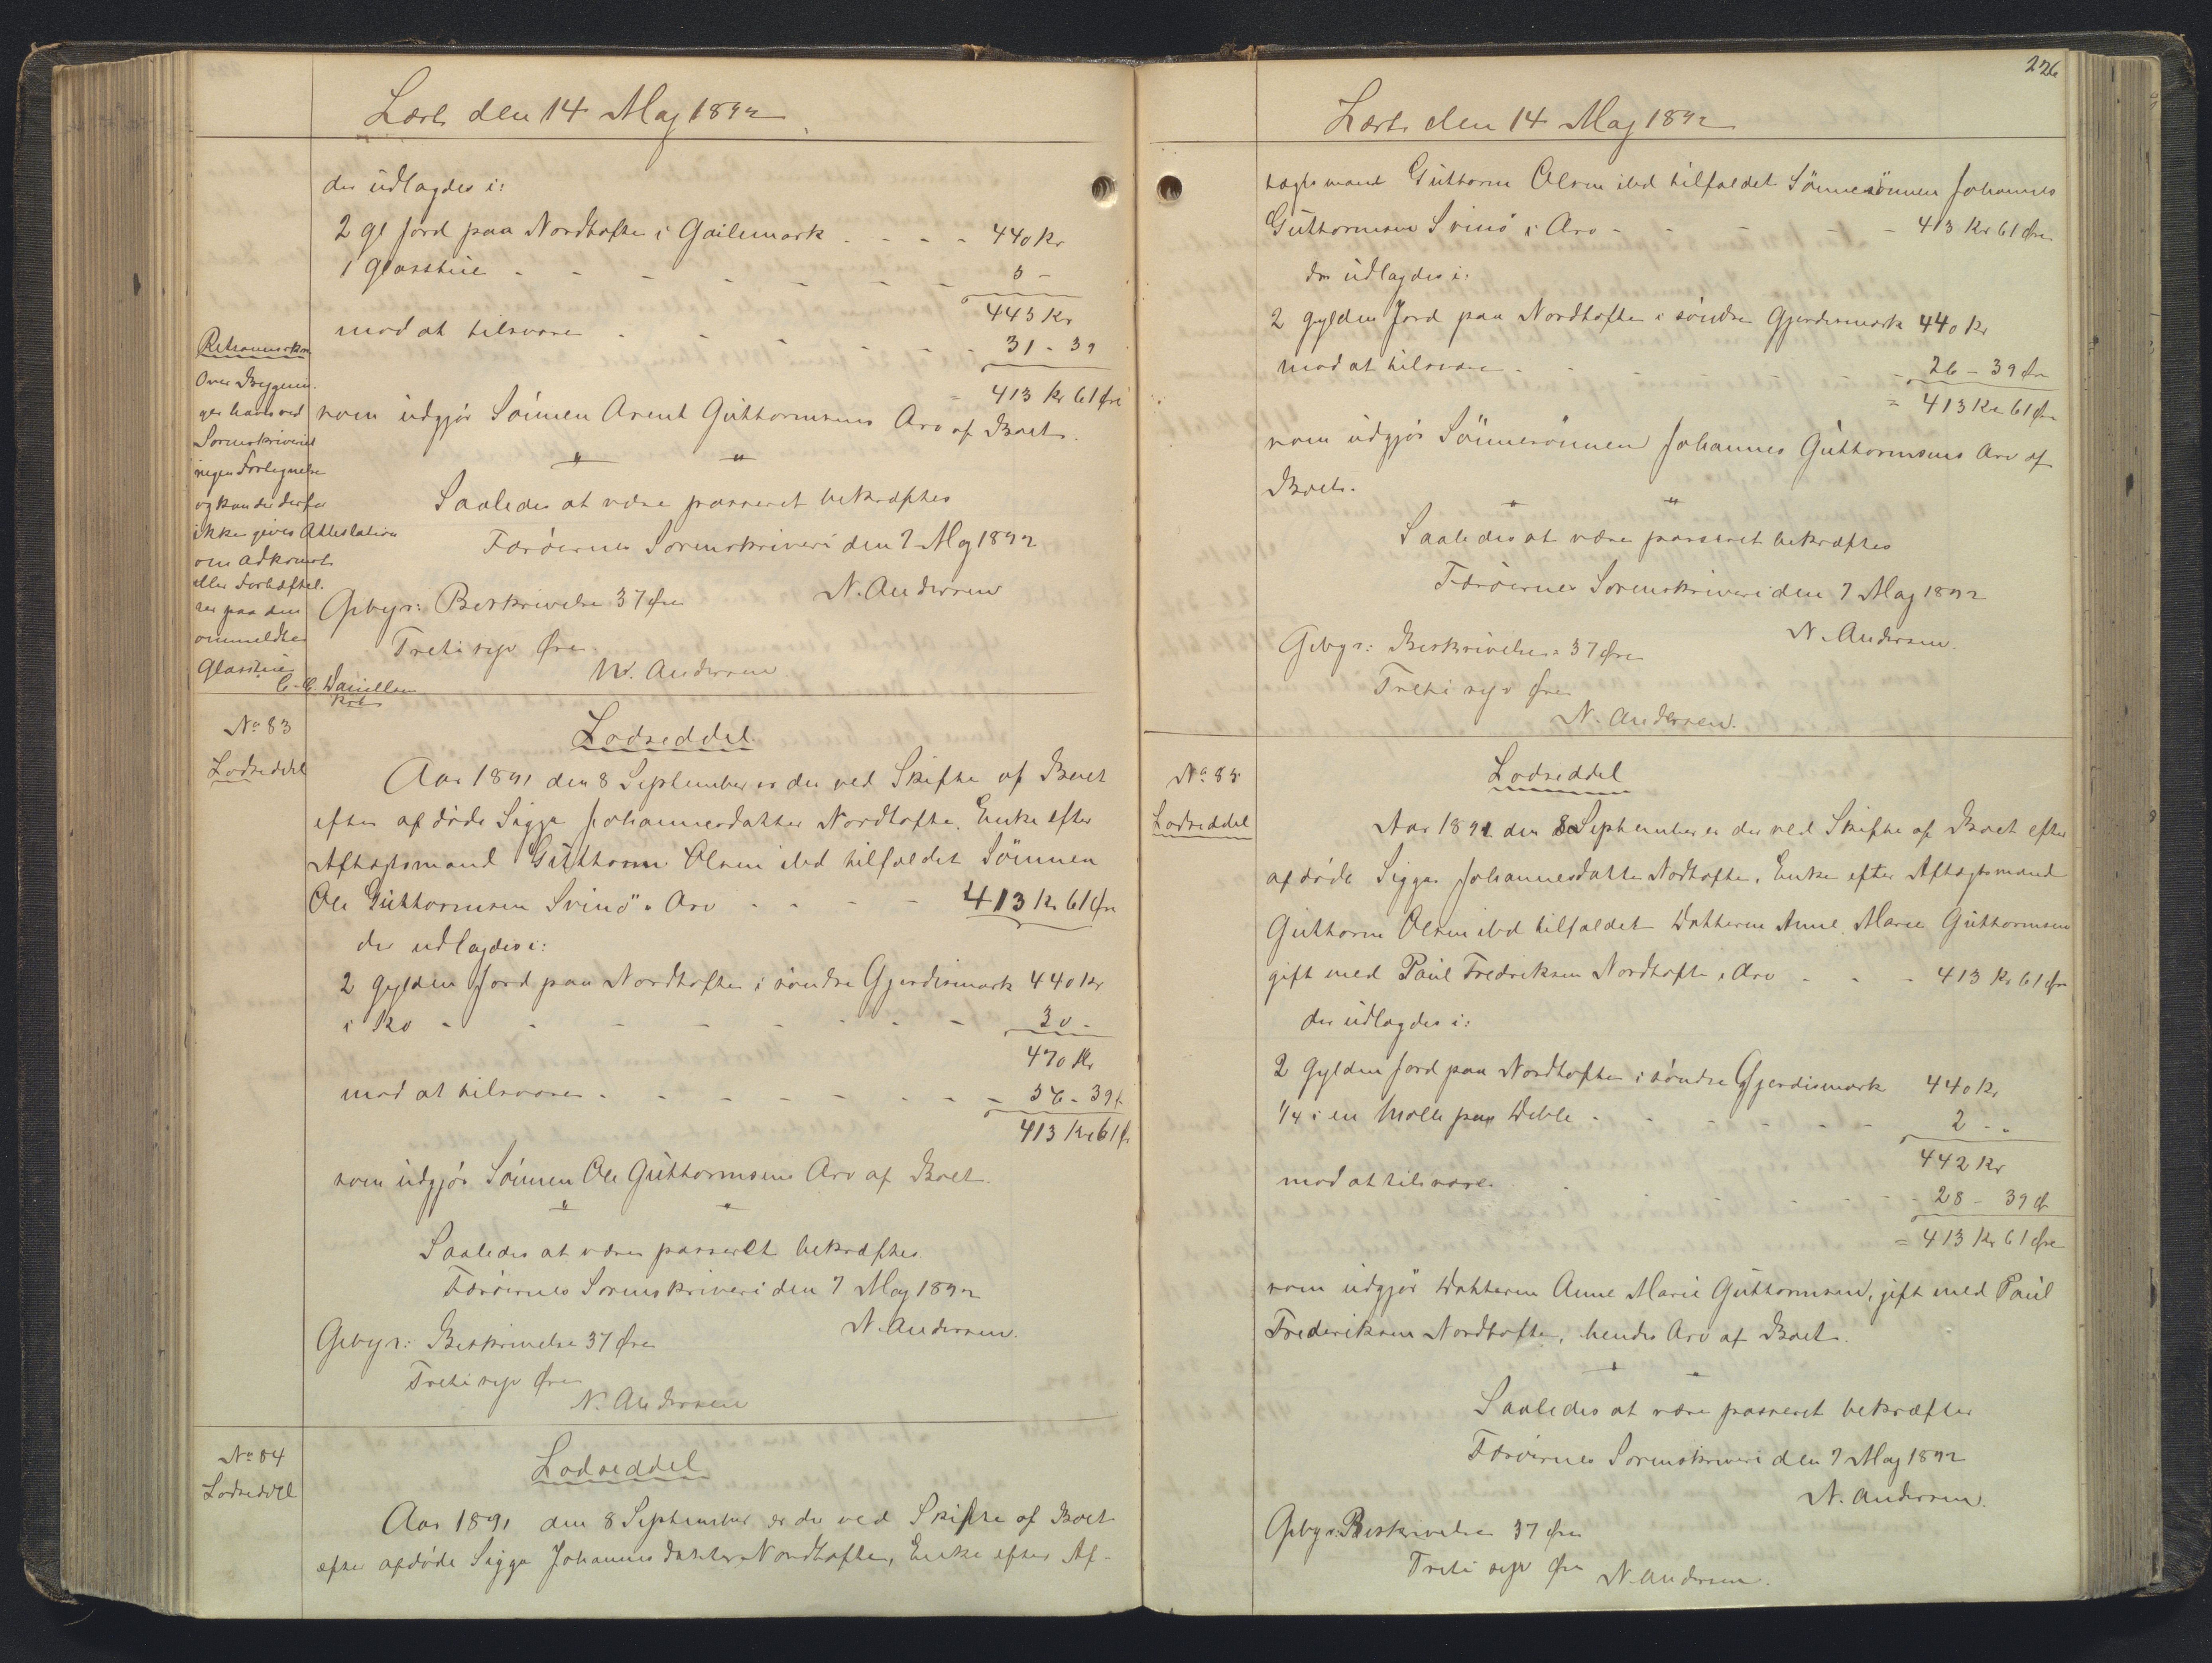 Læst den 14 Maj 1892
der udlagdes i:
2 gl Jord paa Nordtofte i Gailemark - - - - 440 Kr
1 Glasstue - - - - - - - 5 -
445 Kr
mod at tilsvare - - - - - - - 31 - 39
= 413 Kr 61 Øre
som udgjör Sönnen Arent Guttormsens Arv af Boet.
Saaledes at være passeret bekræftes
Færöernes Sorenskriveri den 7 Maj 1892
N. Andersen
Gebyr: Beskrivelse 37 Øre
Treti syv Øre
N. Andersen
Retsanmærkn
Over Bygnin-
ger haves ved
Sorenskriveriet
ingen Fortegnelse
og kan der derfor
ikke gives Attestation
om Adkomst
eller Forhæftel-
ser paa den
ommeldte
Glasstue
Danielsen
Kst
No 83
Lodseddel
Lodseddel
Aar 1891 den 8 September er der ved Skifte af Boet
efter afdöde Sigga Johannesdatter Nordtofte, Enke efter
Aftægtsmand Guttorm Olsen ibd tilfaldet Sönnen
Ole Guttormsen Svinö i Arv - - - - 413 Kr 61 Øre
der udlagdes i:
2 Gylden Jord paa Nordtofte i söndre Gjerdismark 440 Kr
1 Ko - - - - - - - - 30 -
470 Kr
mod at tilsvare - - - - - - - - 56 - 39 Ø
413 Kr 61 Ø
som udgjör Sönnen Ole Guttormsens Arv af Boet.
Saaledes at være passeret bekræftes.
Færöernes Sorenskriveri den 7 Maj 1892
N. Andersen.
Gebyr: Beskrivelse 37 Øre
Treti syv Øre
N. Andersen
No 84
Lodseddel
Lodseddel
Aar 1891 den 8 September er der ved Skifte af Boet
efter afdöde Sigga Johannesdatter Nordtofte, Enke efter Af-
226
Læst den 14 Maj 1892
tægtsmand Guttorm Olsen ibd tilfaldet Sönnesönnen Johannes
Guttormsen Svinö i Arv - - - - - 413 Kr 61 Øre
der udlagdes i:
2 Gylden Jord paa Nordtofte i söndre Gjerdismark 440 Kr
mod at tilsvare - - - - - - 26 - 39 Øre
= 413 Kr 61 Øre
som udgjör Sönnesönnen Johannes Guttormsens Arv af
Boet.
Saaledes at være passeret bekræftes
Færöernes Sorenskriveri den 7 Maj 1892
N. Andersen.
Gebyr: Beskrivelse 37 Øre
Treti syv Øre
N. Andersen.
No 85
Lodseddel
Lodseddel
Aar 1891 den 8 September er der ved Skifte af Boet efter
afdöde Sigga Johannesdatter Nordtofte, Enke efter Aftægtsmand
Guttorm Olsen ibd tilfaldet Datteren Anne Marie Guttormsen
gift med Paul Fredriksen Nordtofte i Arv - - - 413 Kr 61 Øre
der udlagdes i:
2 Gylden Jord paa Nordtofte i söndre Gjerdismark 440 Kr
1/4 i en Mølle paa Deble - - - - - - 2 - "
442 Kr
mod at tilsvare - - - - - - 28 - 39 Ø
= 413 Kr 61 Øre
som udgjör Datteren Anne Marie Guttormsen, gift med Paul
Frederiksen Nordtofte, hendes Arv af Boet.
Saaledes at være passeret bekræftes
Færöernes Sorenskriveri den 7 Maj 1892
N. Andersen.
Gebyr: Beskrivelse 37 Øre
Treti syv Øre
N. Andersen.